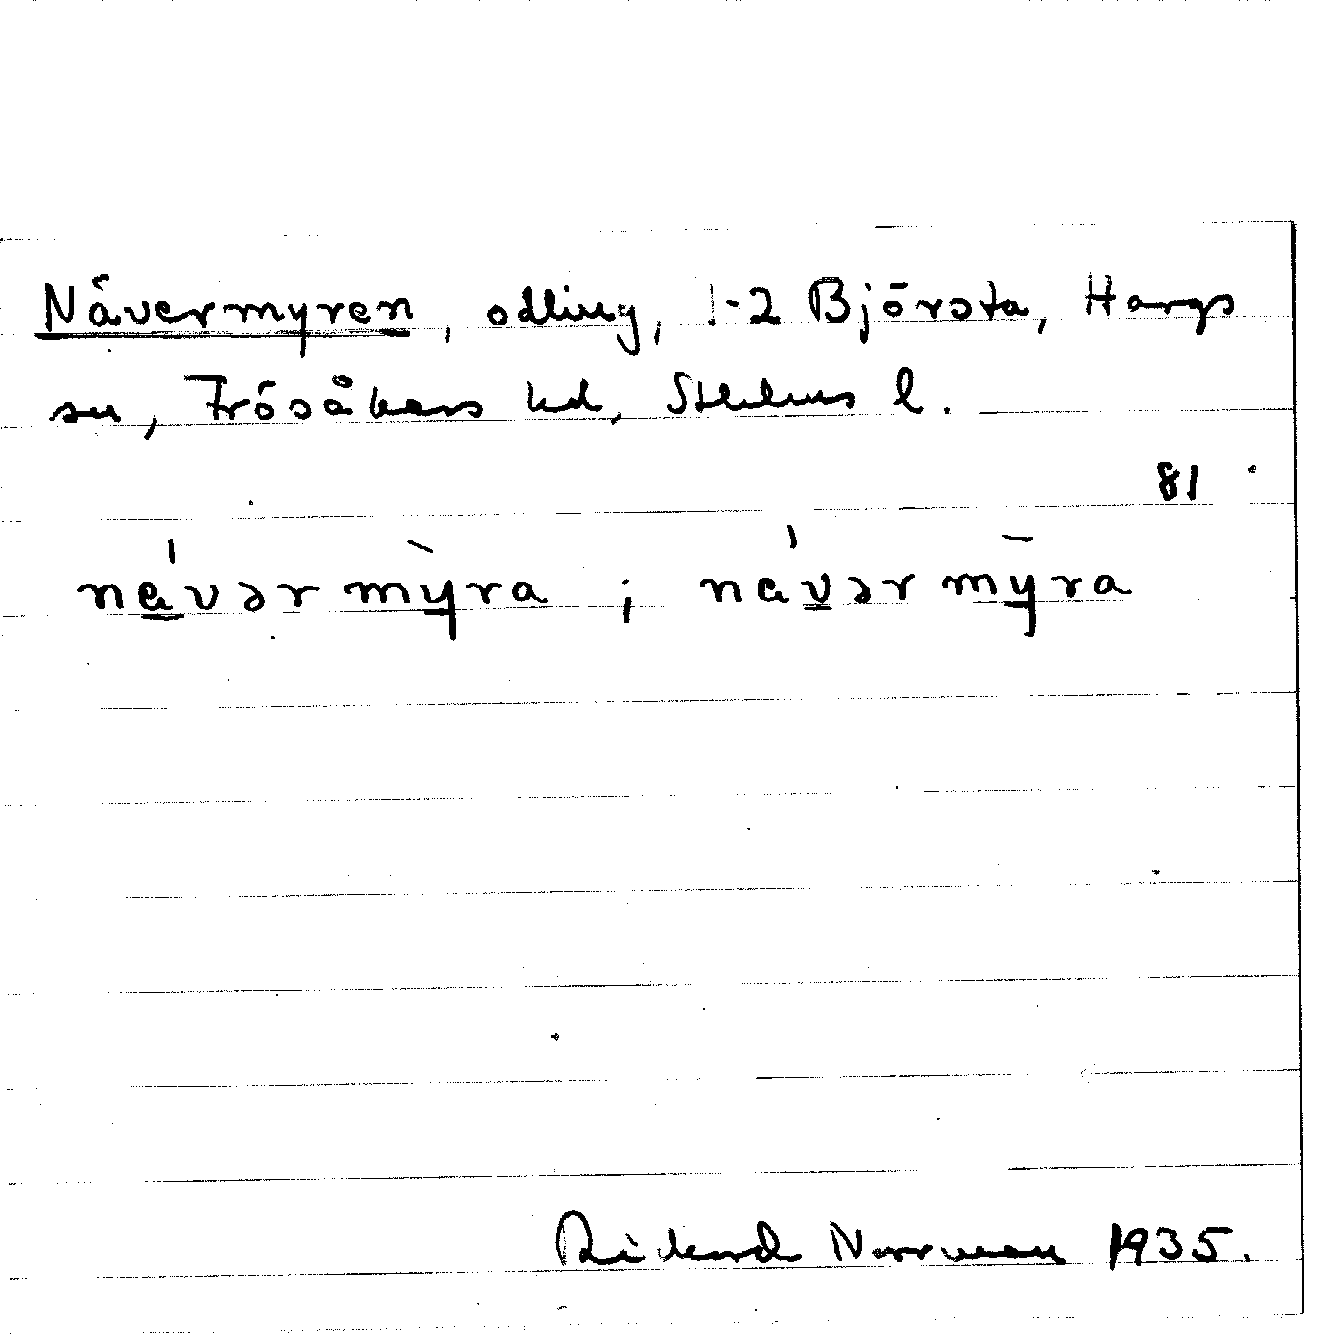 Nävermyren, odling, 1-2 Björsta, Hargs
sn, Frösåkers hd, Sthlms l.
81
návər mỳra ; návər mȳra
Rickard Norrman 1935.